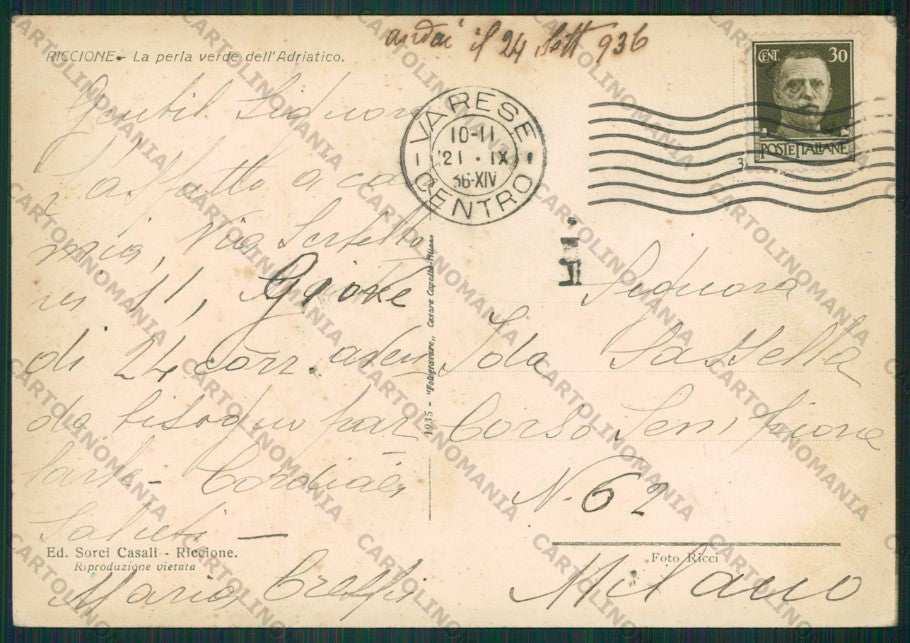 andai il 24 Sett 936
RICCIONE - La perla verde dell'Adriatico.
CENT. 30
POSTE ITALIANE
VARESE
10-11
21 · IX
36·XIV
CENTRO
Gentil Signora
L'aspetto a casa
mia, Via
11, Giove
di 24 corr. aven
do bisogno par
larle - Cordiali
Saluti -
Mario Crespi
1935 - "Fotogravure" Cesare Capello-Milano
Signora
Ida Sassella
Corso Sempione
N. 62
Milano
Ed. Sorci Casali - Riccione.
Riproduzione vietata
Foto Ricci
CARTOLINOMANIA